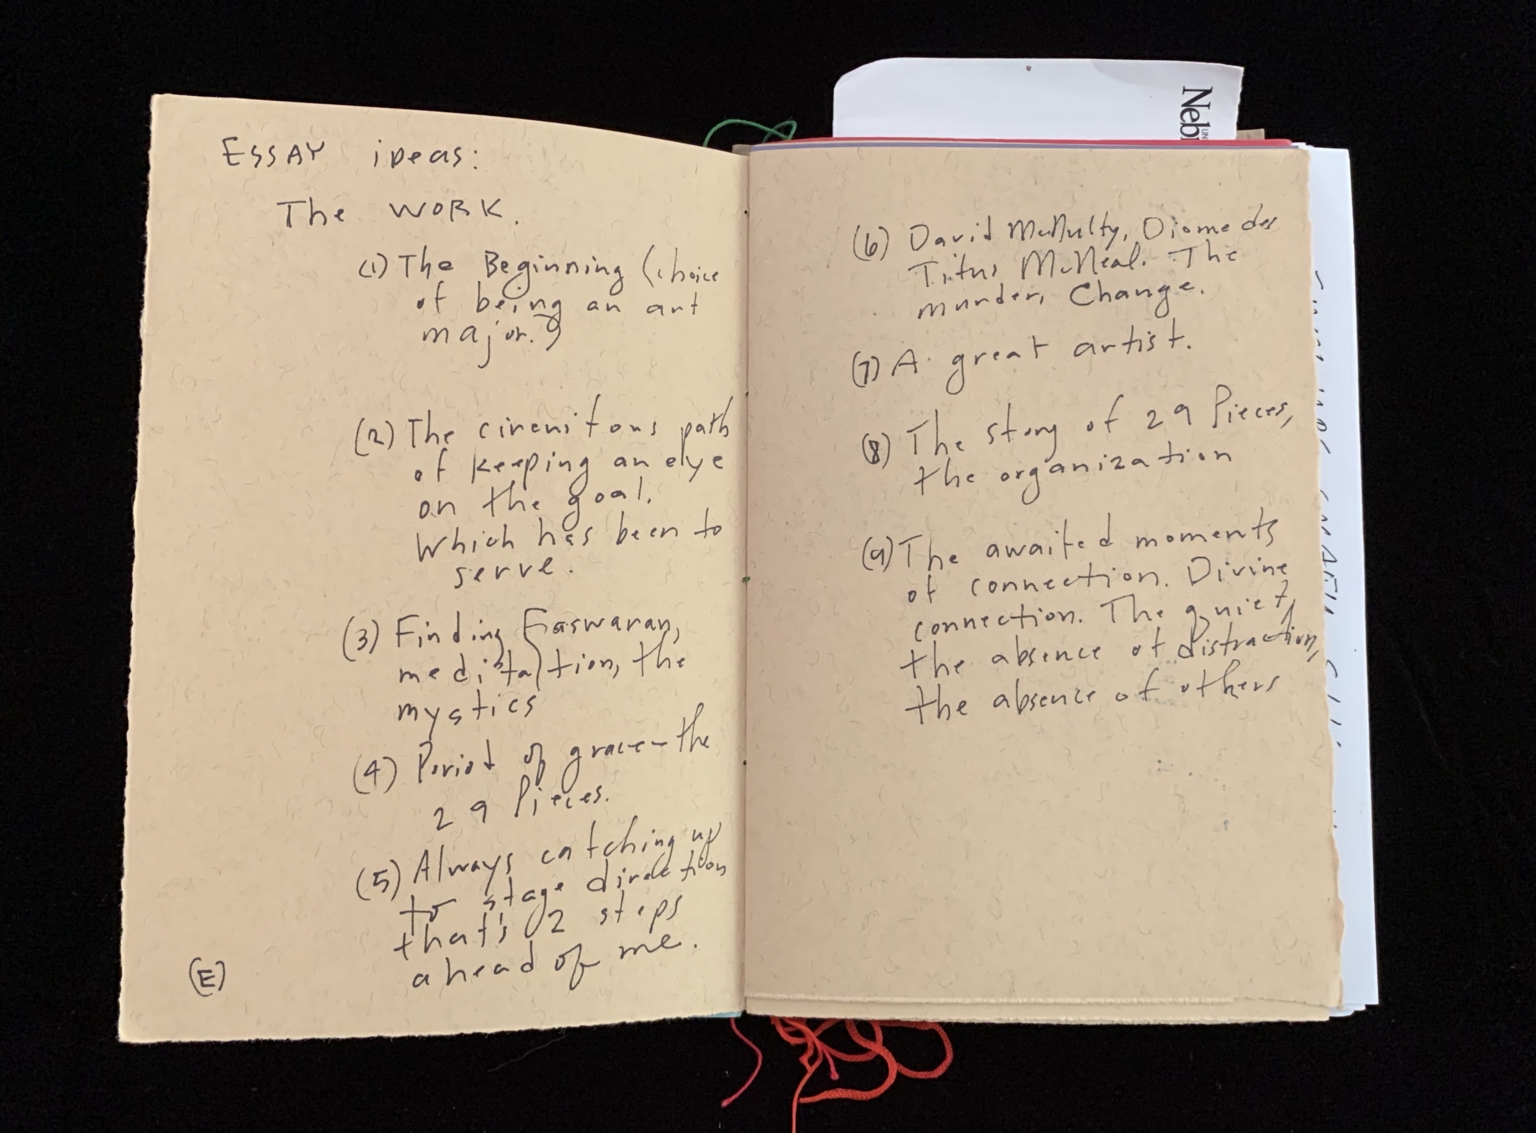 ESSAY ideas:
The WORK.
(1) The Beginning (choice
of being an art
major.)
(2) The circuitous path
of keeping an eye
on the goal.
Which has been to
serve.
(3) Finding Easwaran,
meditation, the
mystics
(4) Period of grace - the
29 Pieces.
(5) Always catching up
to stage direction
that's 2 steps
ahead of me.
(E)
Neb
(6) David McNulty, Diomedes
Titus McNeal. The
murder, Change.
(7) A great artist.
(8) The story of 29 Pieces,
the organization
(9) The awaited moments
of connection. Divine
connection. The quiet,
the absence of distraction,
the absence of others